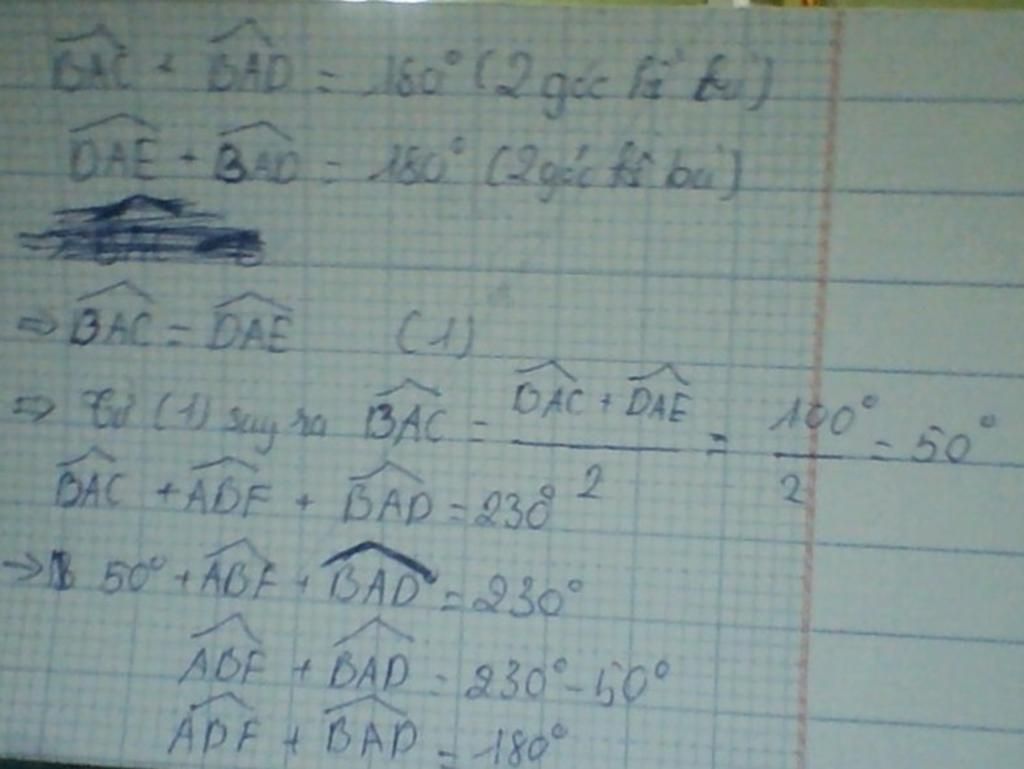 $\widehat{BAC} + \widehat{BAD} = 180^\circ$ (2 góc kề bù)
$\widehat{DAE} + \widehat{BAD} = 180^\circ$ (2 góc kề bù)
$\Rightarrow \widehat{BAC} = \widehat{DAE}$ (1)
$\Rightarrow$ Từ (1) suy ra $\widehat{BAC} = \frac{\widehat{BAC} + \widehat{DAE}}{2} = \frac{100^\circ}{2} = 50^\circ$
$\widehat{BAC} + \widehat{ABF} + \widehat{BAD} = 230^\circ$
$\rightarrow 50^\circ + \widehat{ABF} + \widehat{BAD} = 230^\circ$
$\widehat{ABF} + \widehat{BAD} = 230^\circ - 50^\circ$
$\widehat{ABF} + \widehat{BAD} = 180^\circ$